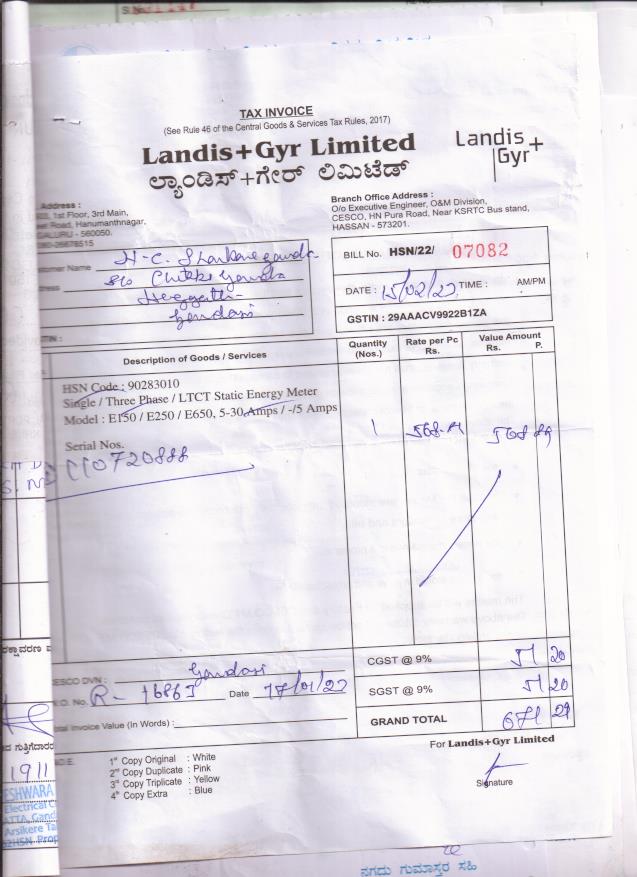 TAX INVOICE
(See Rule 46 of the Central Goods & Services Tax Rules, 2017)
Landis+Gyr Limited
ಲ್ಯಾಂಡಿಸ್+ಗೇರ್ ಲಿಮಿಟೆಡ್
Landis+
Gyr
Address :
1st Floor, 3rd Main,
Road, Hanumanthnagar,
560050.
26678515
Branch Office Address :
O/o Executive Engineer, O&M Division,
CESCO, HN Pura Road, Near KSRTC Bus stand,
HASSAN - 573201.
Customer Name H-C.
S/o
Gandasi
BILL No. HSN/22/ 07082
DATE : 15/02/23 TIME : AM/PM
GSTIN : 29AAACV9922B1ZA
Description of Goods / Services
Quantity (Nos.)
Rate per Pc Rs.
Value Amount Rs. P.
HSN Code : 90283010
Single / Three Phase / LTCT Static Energy Meter
Model : E150 / E250 / E650, 5-30 Amps / -/5 Amps
1
568
Serial Nos.
CESCO DVN : Gandasi
Date
Invoice Value (In Words) :
CGST @ 9% 51 20
SGST @ 9% 51 20
GRAND TOTAL 671 29
For Landis+Gyr Limited
Signature
1st Copy Original : White
2nd Copy Duplicate : Pink
3rd Copy Triplicate : Yellow
4th Copy Extra : Blue
1911
ESHWARA
Electrical
Arsikere
ನಗದು ಗುಮಾಸ್ತರ ಸಹಿ